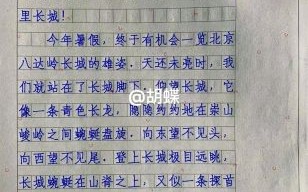 里长城！
今年暑假，终于有机会一览北京
八达岭长城的雄姿。天还未亮时，我
们就站在了长城脚下，仰望长城，它
像一条青色长龙，隐隐约约地在崇山
峻岭之间蜿蜒盘旋。向东望不见头，
向西望不见尾。登上长城极目远眺，
长城蜿蜒在山脊之上，又似一条探首
@胡蝶